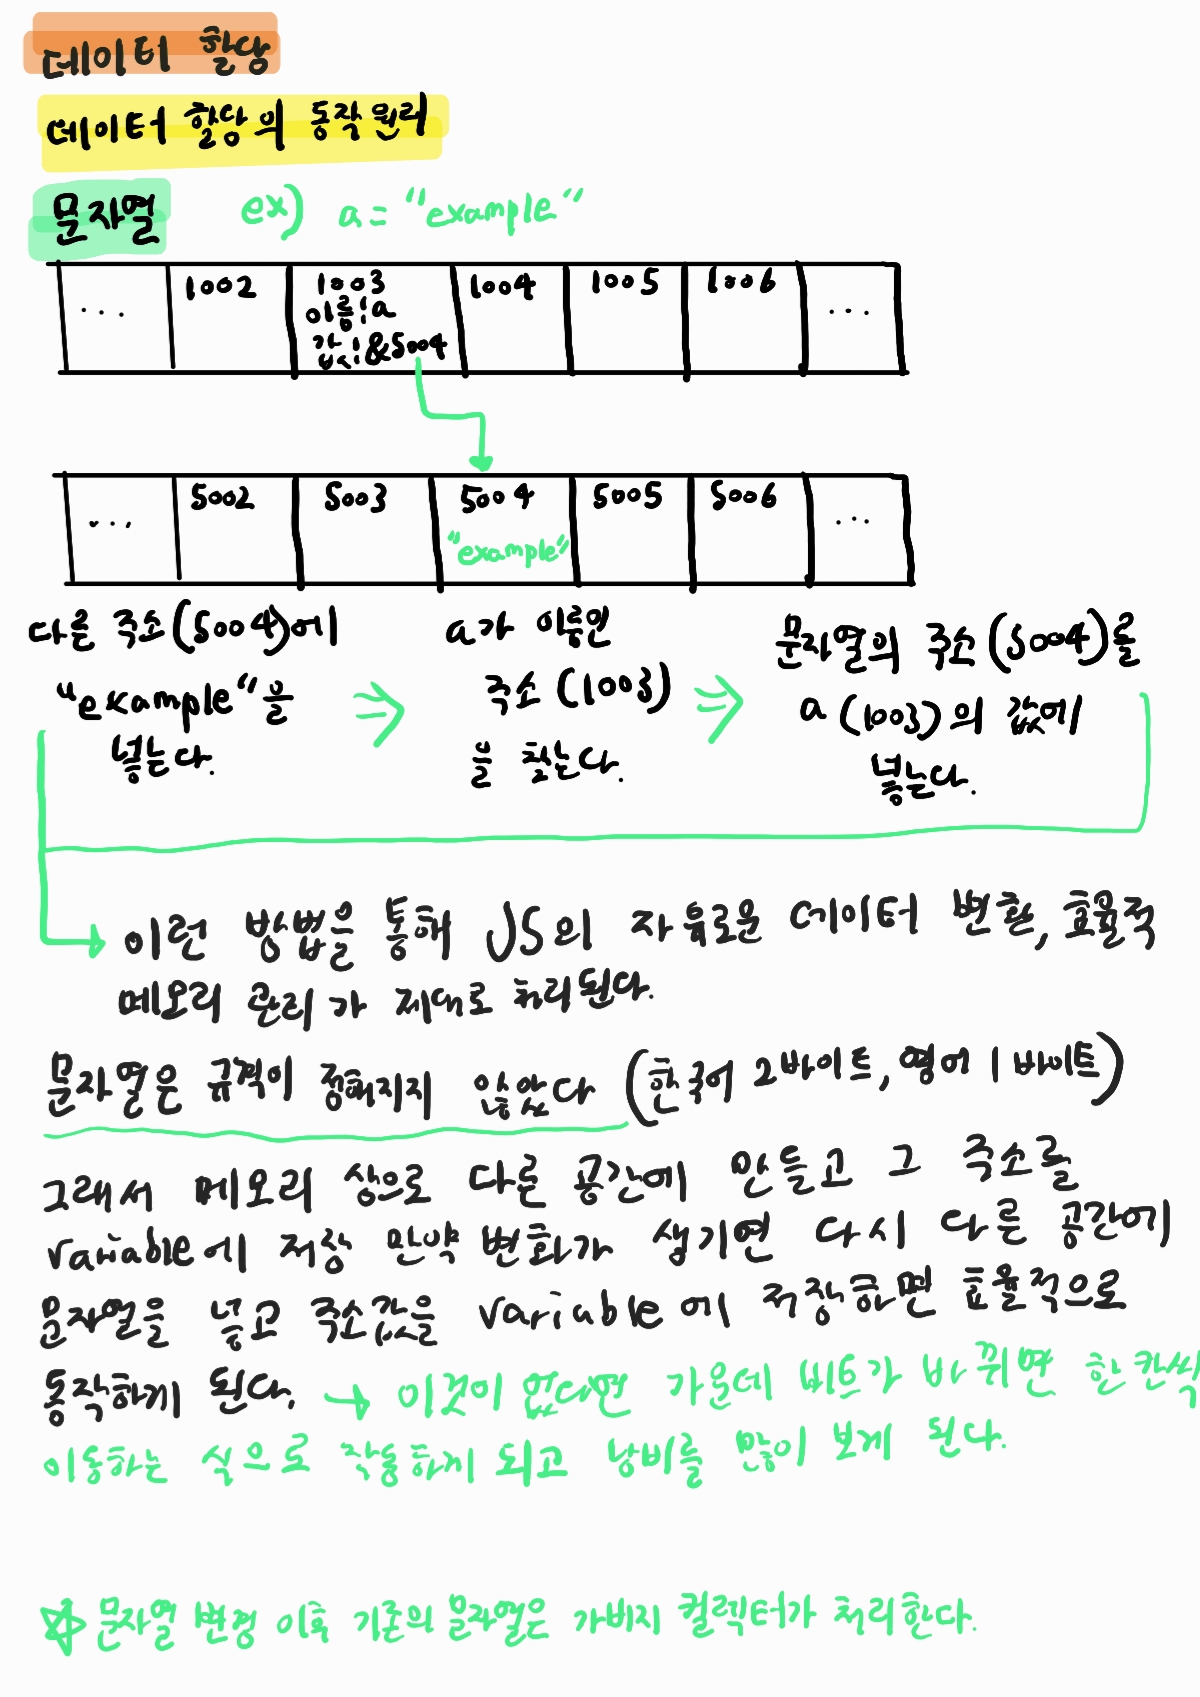 데이터 할당
데이터 할당의 동작 원리
문자열 ex) a = "example"
... 1002 1003 1004 1005 1006 ...
이름:a
값:&5004
... 5002 5003 5004 5005 5006 ...
"example"
다른 주소(5004)에
"example"을
넣는다.
a가 이름인
주소(1003)
을 찾는다.
문자열의 주소(5004)를
a(1003)의 값에
넣는다.
이런 방법을 통해 JS의 자유로운 데이터 변환, 효율적
메모리 관리가 제대로 처리된다.
문자열은 규격이 정해지지 않았다 (한국어 2바이트, 영어 1바이트)
그래서 메모리 상으로 다른 공간에 만들고 그 주소를
variable에 저장 만약 변화가 생기면 다시 다른 공간에
문자열을 넣고 주소값을 variable에 저장하면 효율적으로
동작하게 된다. → 이것이 없다면 가운데 비트가 바뀌면 한칸씩
이동하는 식으로 작동하게 되고 낭비를 많이 보게 된다.
☆ 문자열 변경 이후 기존의 문자열은 가비지 컬렉터가 처리한다.